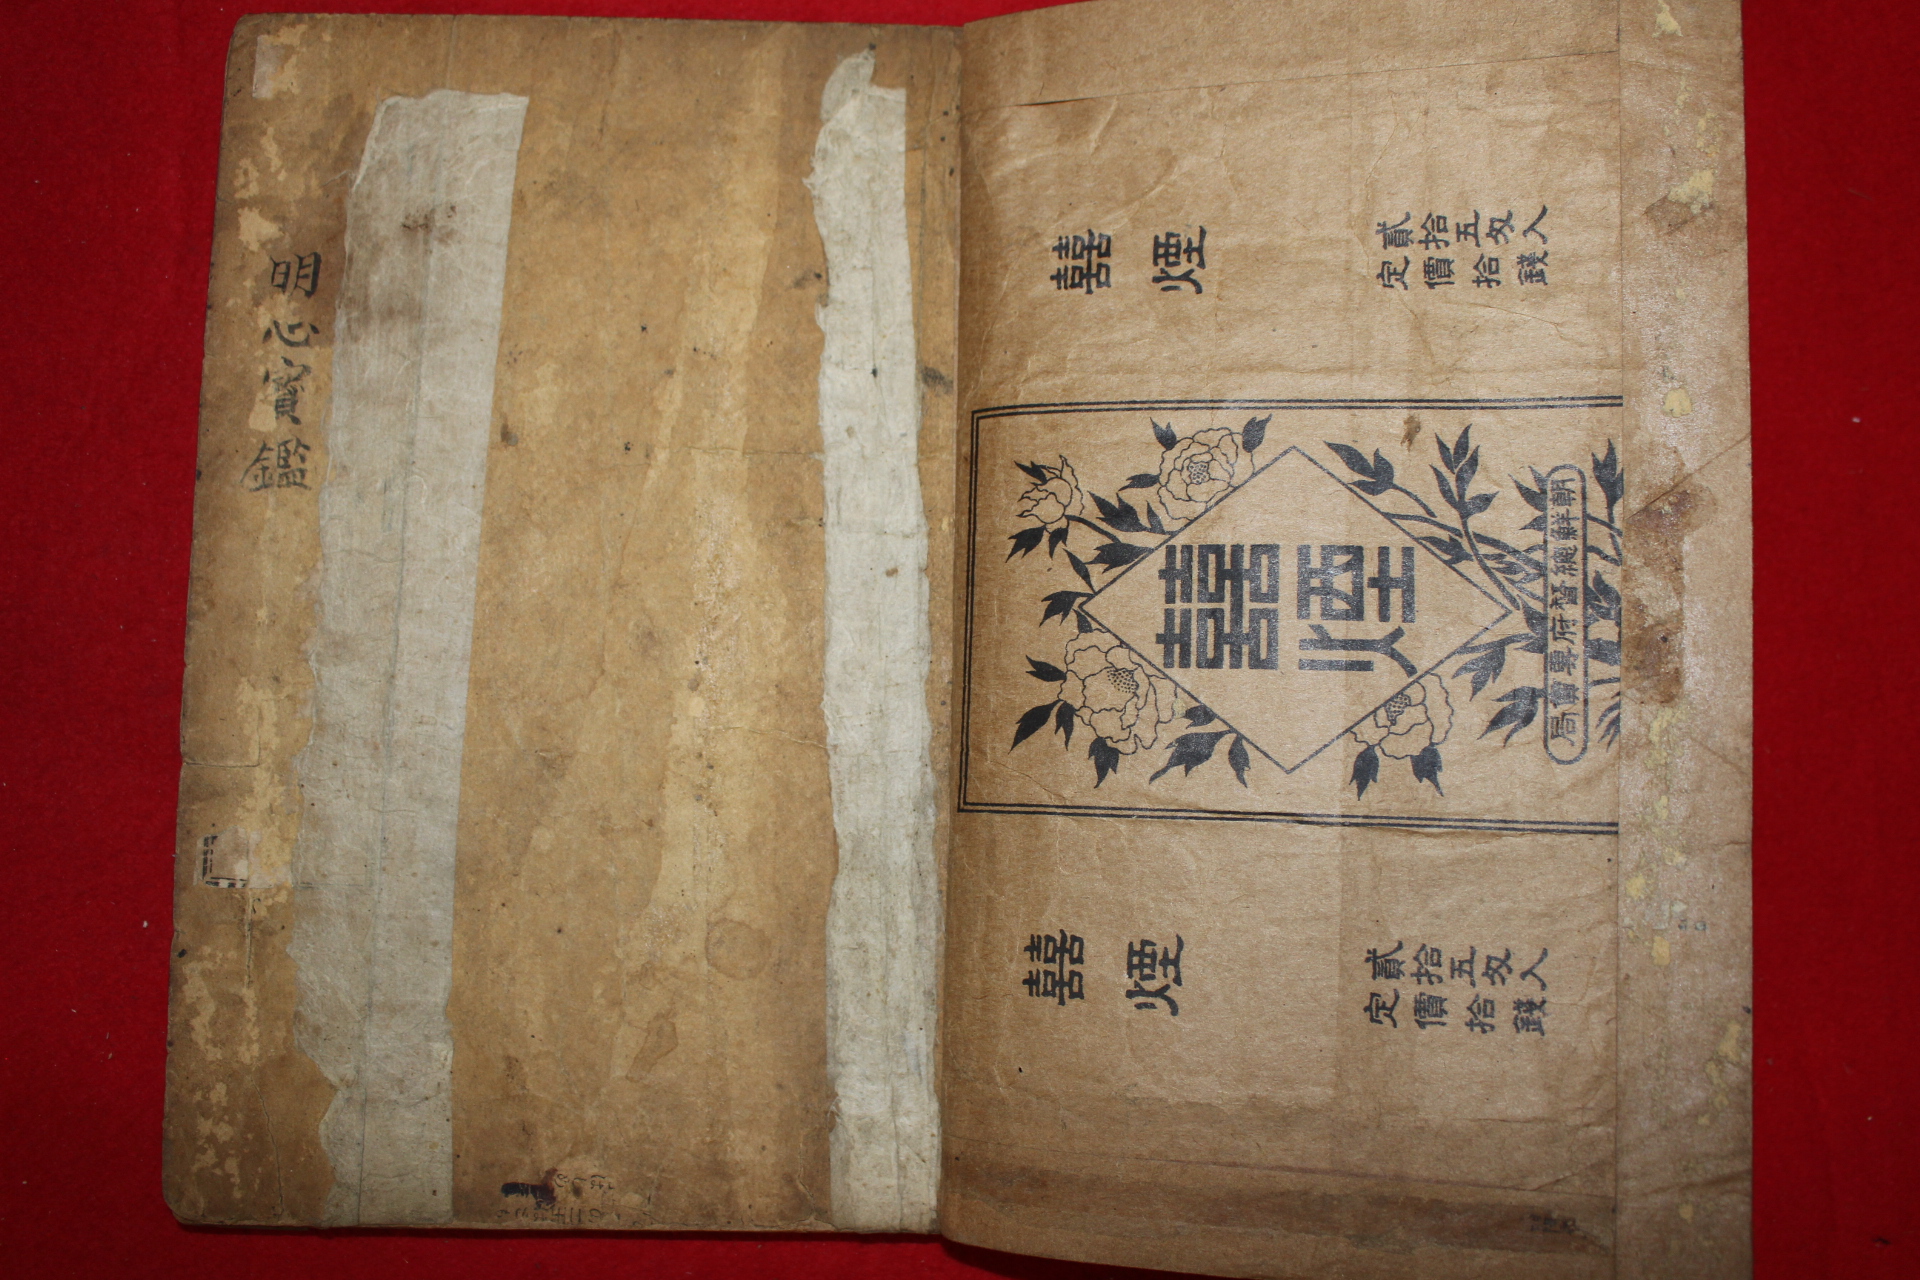 明心寶鑑
囍煙
貳拾五匁入
定價拾錢
囍煙
朝鮮總督府專賣局
囍煙
貳拾五匁入
定價拾錢